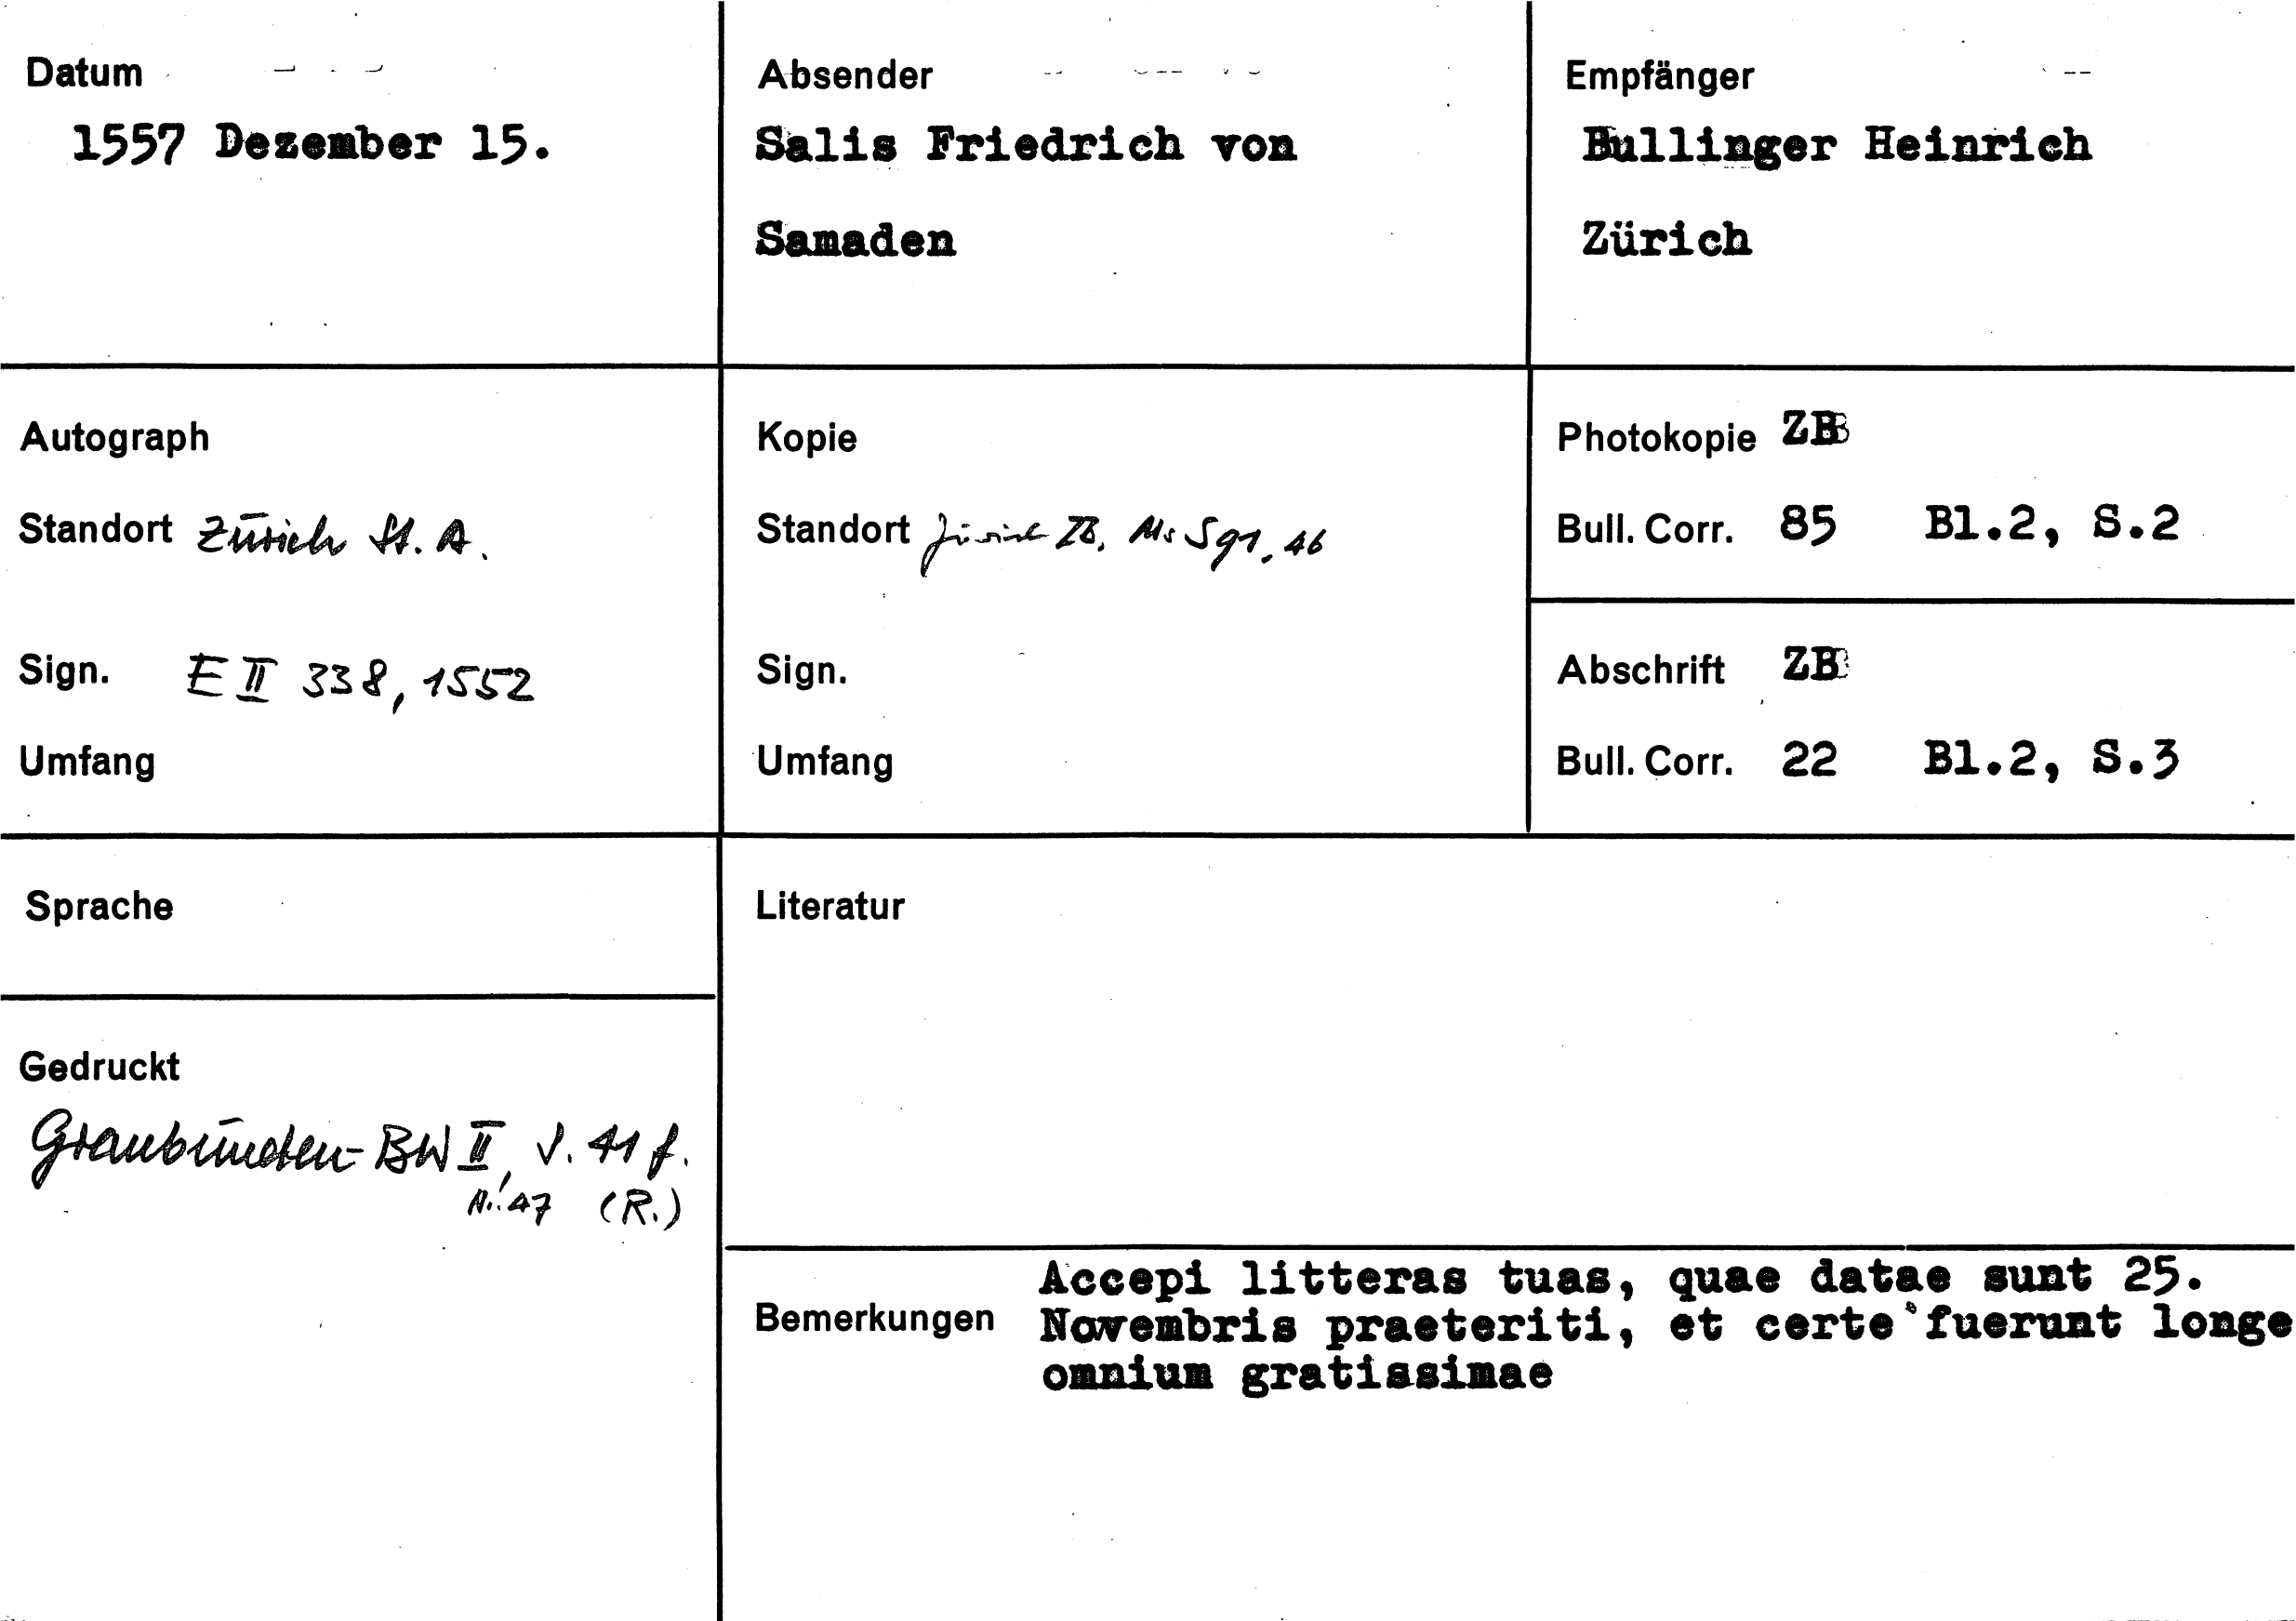 Datum
1557 Dezember 15.
Absender
Salis Friedrich von
Samaden
Empfänger
Bullinger Heinrich
Zürich
Autograph
Standort Zürich St. A.
Sign. E II 338, 1552
Umfang
Kopie
Standort Zürich ZB, Ms S 91, 46
Sign.
Umfang
Photokopie ZB
Bull. Corr. 85 Bl.2, S.2
Abschrift ZB
Bull. Corr. 22 Bl.2, S.3
Sprache
Gedruckt
Graubünden-BW II, S. 41 f.
Nr. 47 (R.)
Literatur
Bemerkungen
Accepi litteras tuas, quae datae sunt 25.
Novembris praeteriti, et certe fuerunt longe
omnium gratissimae